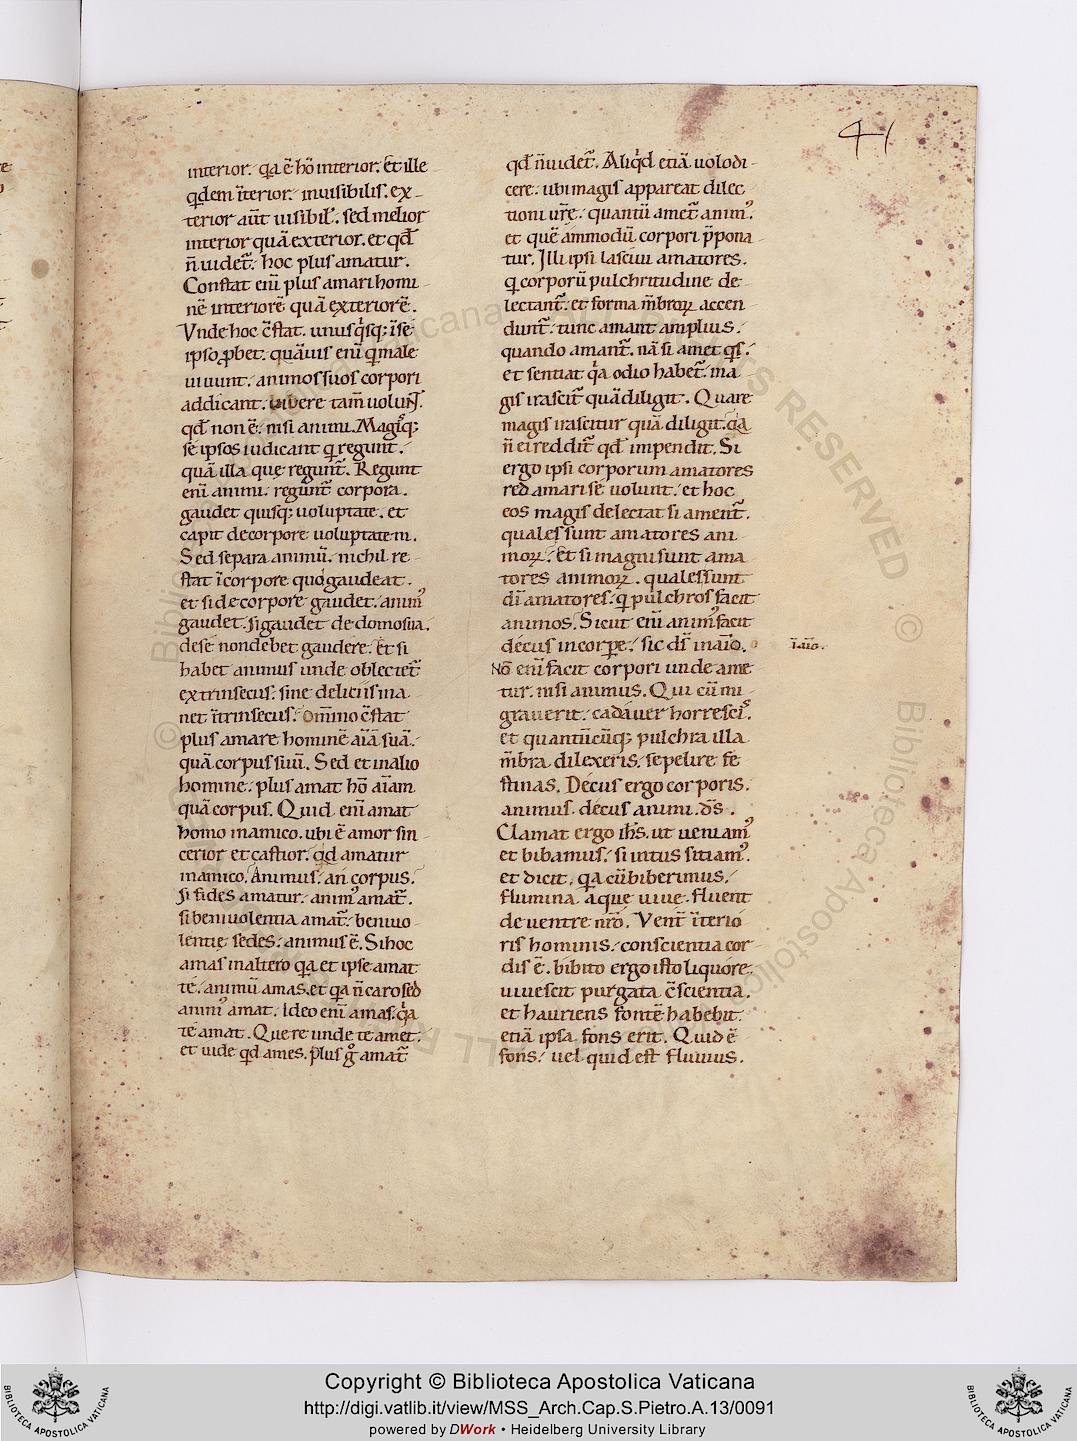 41
interior. qa ē hō interior. Et ille
qdem īterior. inuisibilis. ex-
terior aūt uisibił. sed melior
interior quā exterior. et qđ
n̄ uidet᷑. hoc plus amatur.
Constat eni plus amari homi-
nē interiorē quā exteriorē.
Vnde hoc c̄stat. unusqsq; īse
ipso ꝓbet. quāuis enī qi male
uiuunt. animos suos corpori
addicant. uiuere tam̄ uolunt.
qđ non ē. nisi animi. Magisq;
se ipsos iudicant qi regunt.
quā illa quę regunt᷑. Regunt
enī animi. regunt᷑ corpora.
gaudet quisq; uoluptate. et
capit de corpore uoluptatem.
Sed separa animū. nichil re-
stat ī corpore quod gaudeat.
et si de corpore gaudet. animꝰ
gaudet. Si gaudet de domo sua.
de se non debet gaudere. Et si
habet animus unde oblectet᷑
extrinsecus. sine deliciis ma-
net ītrinsecus. Om̄ino c̄stat
plus amare hominē aīā suā.
quā corpus suū. Sed et in alio
homine. plus amat hō aīam
quā corpus. Quid enī amat
homo in amico. ubi ē amor sin-
cerior et castior. qđ amatur
in amico. Animus. an corpus.
Si fides amatur. animꝰ amat᷑.
si beniuolentia amat᷑. beniuo-
lentię sedes. animus ē. Si hoc
amas in altero qa et ipse amat
te. animū amas. et qa n̄ caro sed
animꝰ amat. Ideo enī amas. qa
te amat. Quere unde te amet.
et uide qd ames. plus g̊ amat᷑
qđ n̄ uidet᷑. Aliqđ etiā uolo di-
cere. ubi magis appareat dilec-
tioni ur̄e. quantū amet᷑ animꝰ.
et quē ammodū corpori p̄pona-
tur. Illi ipsi lasciui amatores.
qi corporū pulchritudine de-
lectant᷑. et forma m̄broꝝ accen-
dunt᷑. tunc amant amplius.
quando amant᷑. nā si amet qis.
et sentiat qa odio habet᷑. ma-
gis irascit᷑ quā diligit. Quare
magis irascitur quā diligit. qa
n̄ ei reddit᷑ qđ impendit. Si
ergo ipsi corporum amatores
redamari se uolunt. et hoc
eos magis delectat si ament᷑.
quales sunt amatores ani-
moꝝ. Et si magni sunt ama-
tores animoꝝ. quales sunt
dī amatores. qi pulchros facit
animos. Sicut enī animꝰ facit
decus in corpe. sic ds̄ in aīo.
ī aīo.
Nō enī facit corpori unde ame-
tur. nisi animus. Qui cū mi-
grauerit. cadauer horrescis.
et quantūcūq; pulchra illa
m̄bra dilexeris. sepelire fe-
stinas. Decus ergo corporis.
animus. decus animi. ds̄.
Clamat ergo ihs̄. ut ueniamꝰ
et bibamus. si intus sitiamꝰ.
et dicit. qa cū biberimus.
flumina aque uiue. fluent
de uentre nr̄o. Vent᷑ īterio-
ris hominis. conscientia cor-
dis ē. bibito ergo isto liquore.
uiuescit purgata c̄scientia.
et hauriens fontē habebit.
etiā ipsa fons erit. Quid ē
fons. uel quid est fluuius.
Copyright © Biblioteca Apostolica Vaticana
http://digi.vatlib.it/view/MSS_Arch.Cap.S.Pietro.A.13/0091
powered by DWork • Heidelberg University Library